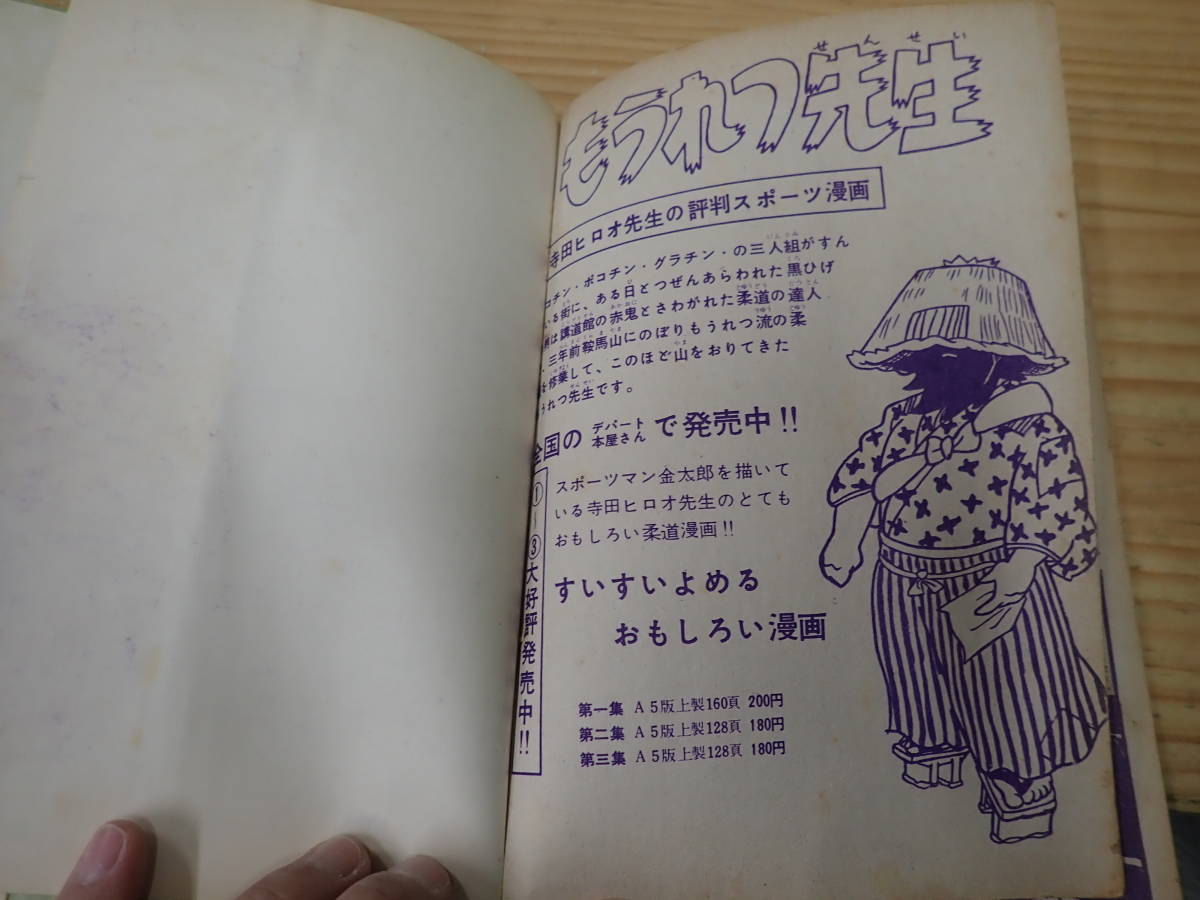 もうれつ先生
せんせい
寺田ヒロオ先生の評判スポーツ漫画
コチン・ポコチン・グラチン・の三人組がすん
いる街に、ある日とつぜんあらわれた黒ひげ
は講道館の赤鬼とさわがれた柔道の達人
三年前鞍馬山にのぼりもうれつ流の柔
を修業して、このほど山をおりてきた
うれつ先生です。
全国の デパート 本屋さん で発売中!!
①〜③大好評発売中!!
スポーツマン金太郎を描いて
いる寺田ヒロオ先生のとても
おもしろい柔道漫画!!
すいすいよめる
おもしろい漫画
第一集 A5版上製160頁 200円
第二集 A5版上製128頁 180円
第三集 A5版上製128頁 180円